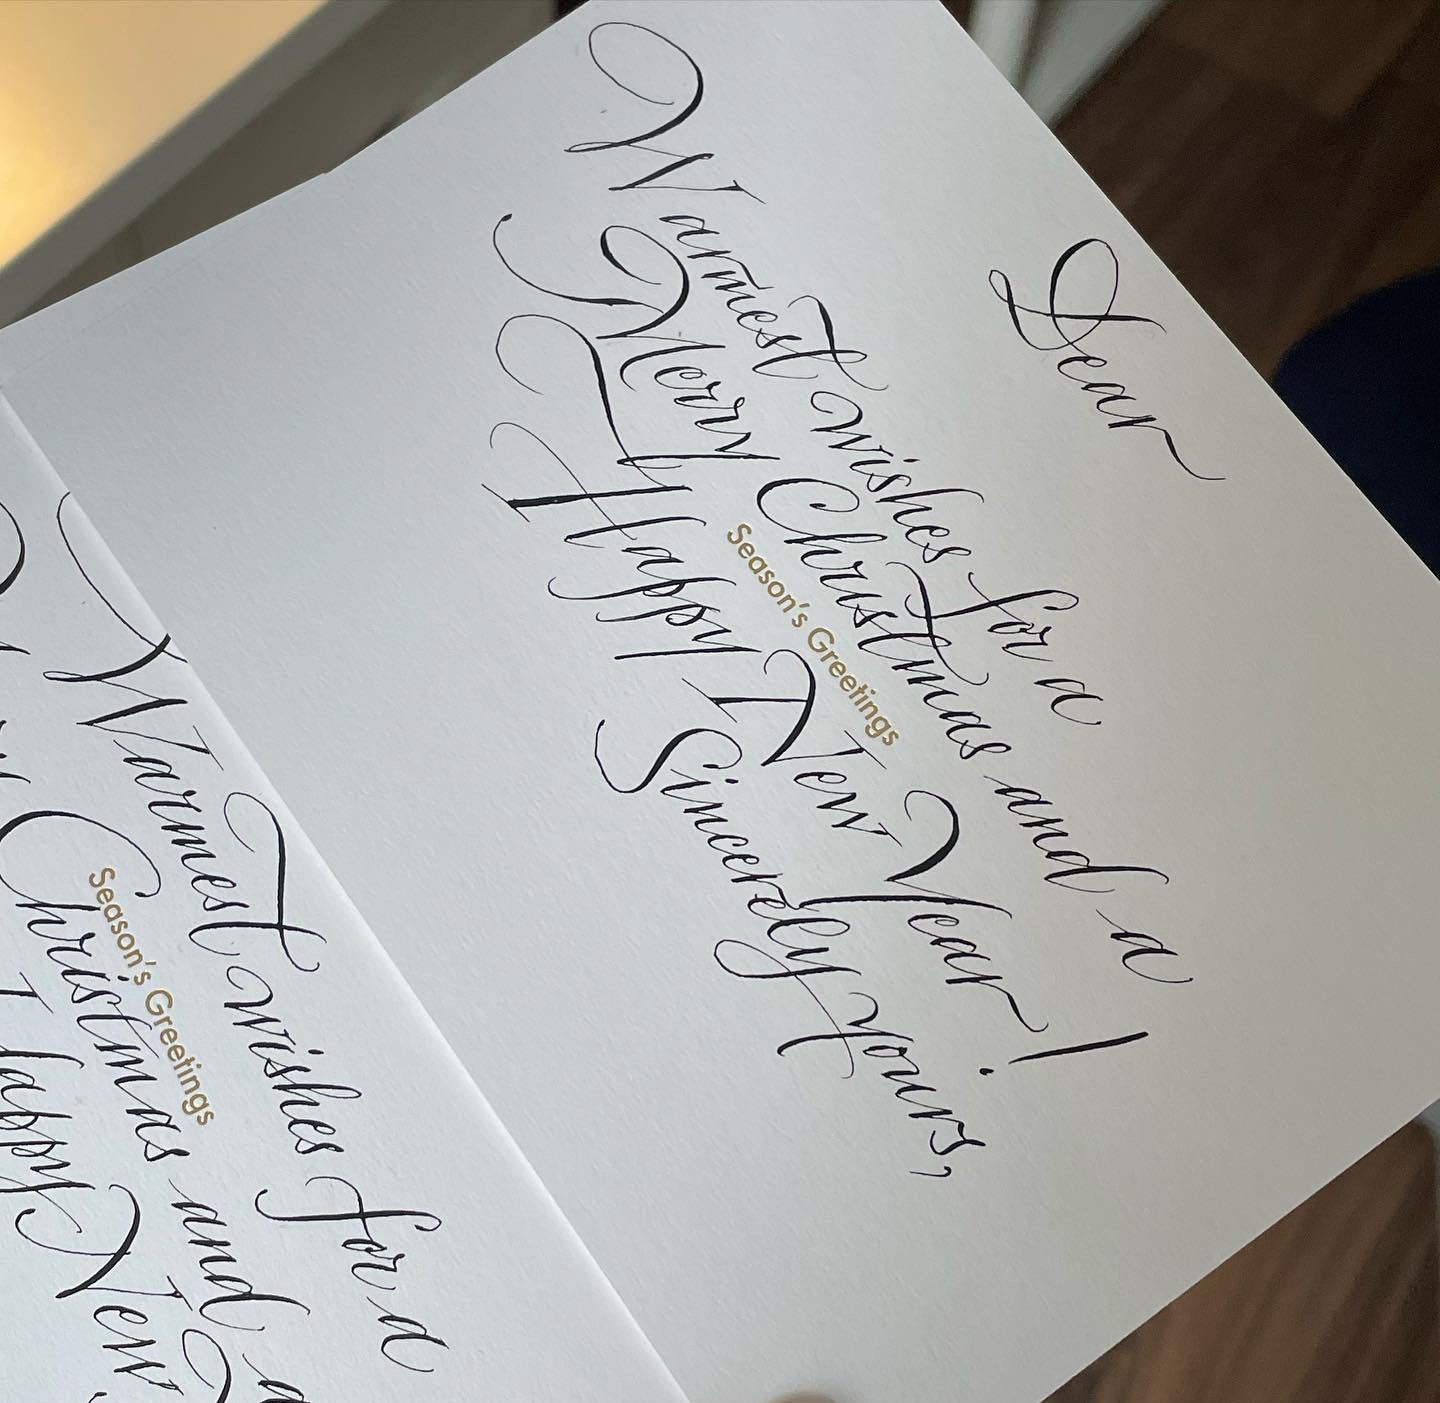 Dear
Warmest wishes for a
Merry Christmas and a
Season's Greetings
Happy New Year!
Sincerely yours,
Warmest wishes for a
Christmas and a
Season's Greetings
Happy New